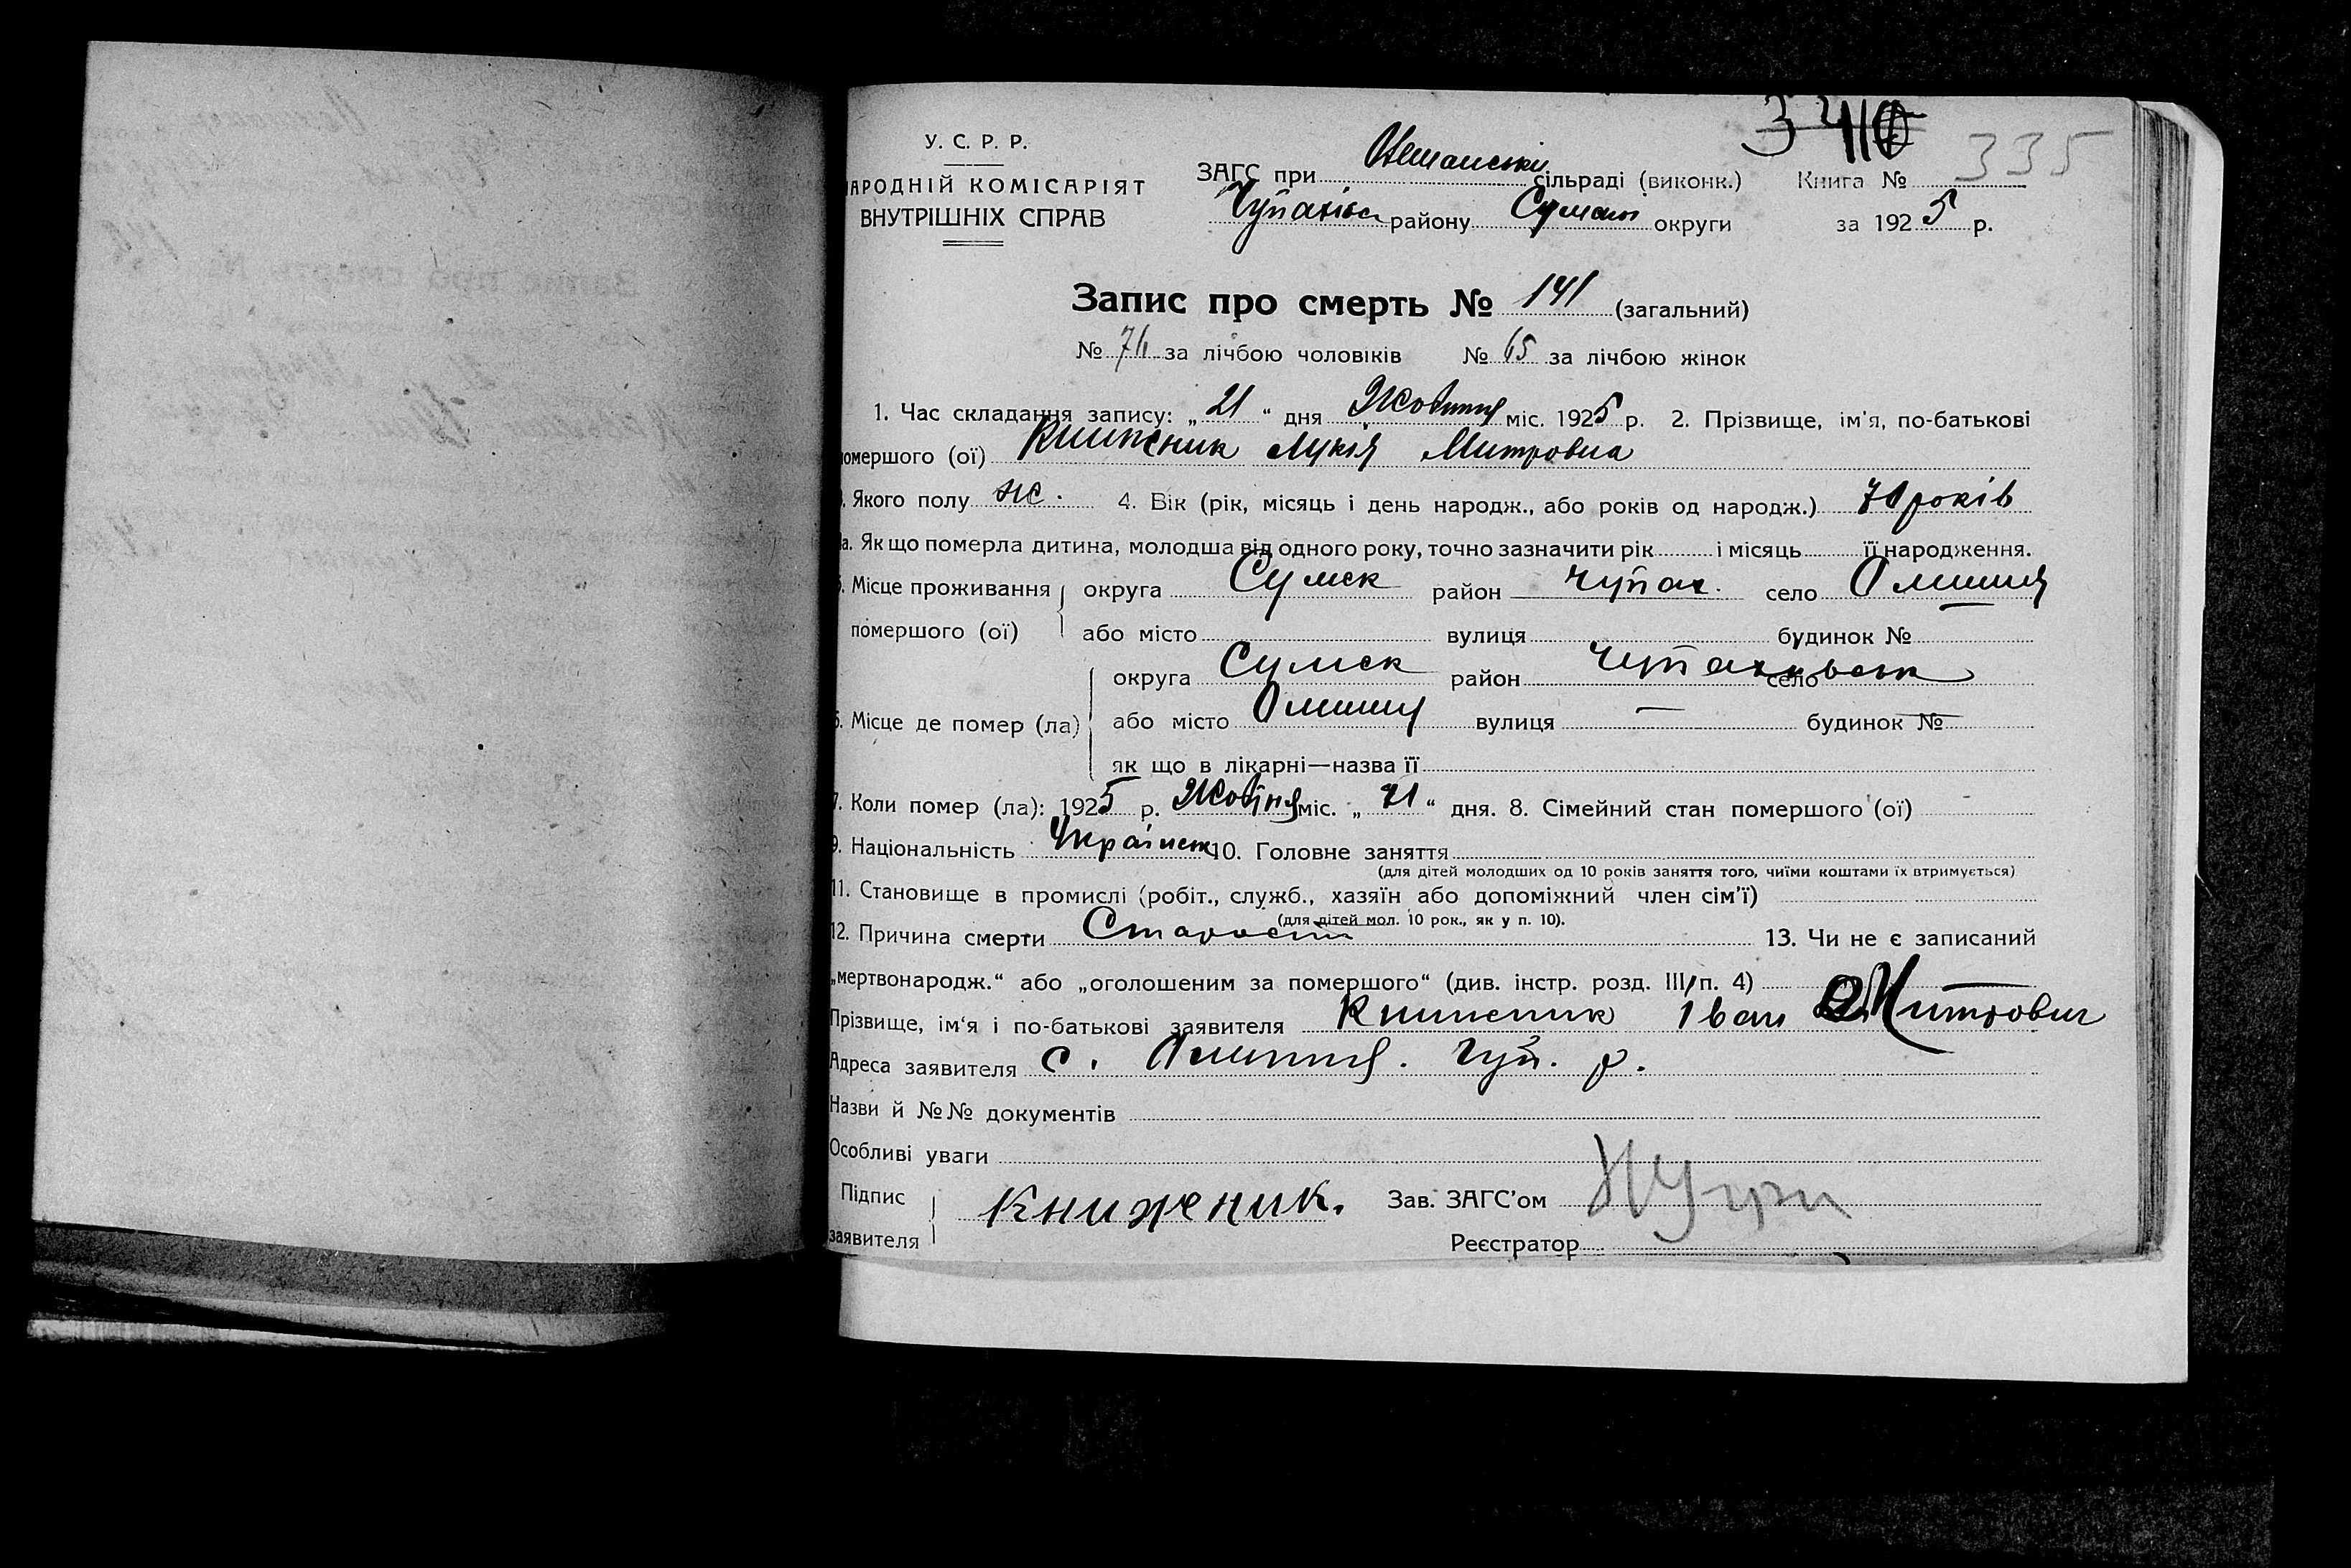 335
У. С. Р. Р.
НАРОДНІЙ КОМІСАРІЯТ
ВНУТРІШНІХ СПРАВ
ЗАГС при сільраді (виконк.) Книга №
району Сумської округи за 1925 р.
Запис про смерть № 141 (загальний)
№ 76 за лічбою чоловіків № 65 за лічбою жінок
1. Час складання запису: „ 21 “ дня Жовтня міс. 1925 р. 2. Прізвище, ім'я, по-батькові
помершого (ої) Книжник Лукія Митровна
3. Якого полу ж. 4. Вік (рік, місяць і день народж., або років од народж.) 70 років
4а. Як що померла дитина, молодша від одного року, точно зазначити рік і місяць її народження.
5. Місце проживання округа Сумск район Чупах. село Олешня
помершого (ої) або місто вулиця будинок №
округа Сумск район Чупахивськ село
6. Місце де помер (ла) або місто Олешня вулиця — будинок №
як що в лікарні—назва її
7. Коли помер (ла): 1925 р. Жовтня міс. „ 21 “ дня. 8. Сімейний стан помершого (ої)
9. Національність Українск 10. Головне заняття
(для дітей молодших од 10 років заняття того, чиїми коштами їх втримується)
11. Становище в промислі (робіт., служб., хазяїн або допоміжний член сім'ї)
(для дітей мол. 10 рок., як у п. 10).
12. Причина смерти Старости 13. Чи не є записаний
„мертвонародж.“ або „оголошеним за помершого“ (див. інстр. розд. III/п. 4) —
Прізвище, ім'я і по-батькові заявителя Книжник Іван Митрович
Адреса заявителя с. Олешня. Чуп. р.
Назви й №№ документів
Особливі уваги
Підпис заявителя Книженик. Зав. ЗАГС'ом
Реєстратор